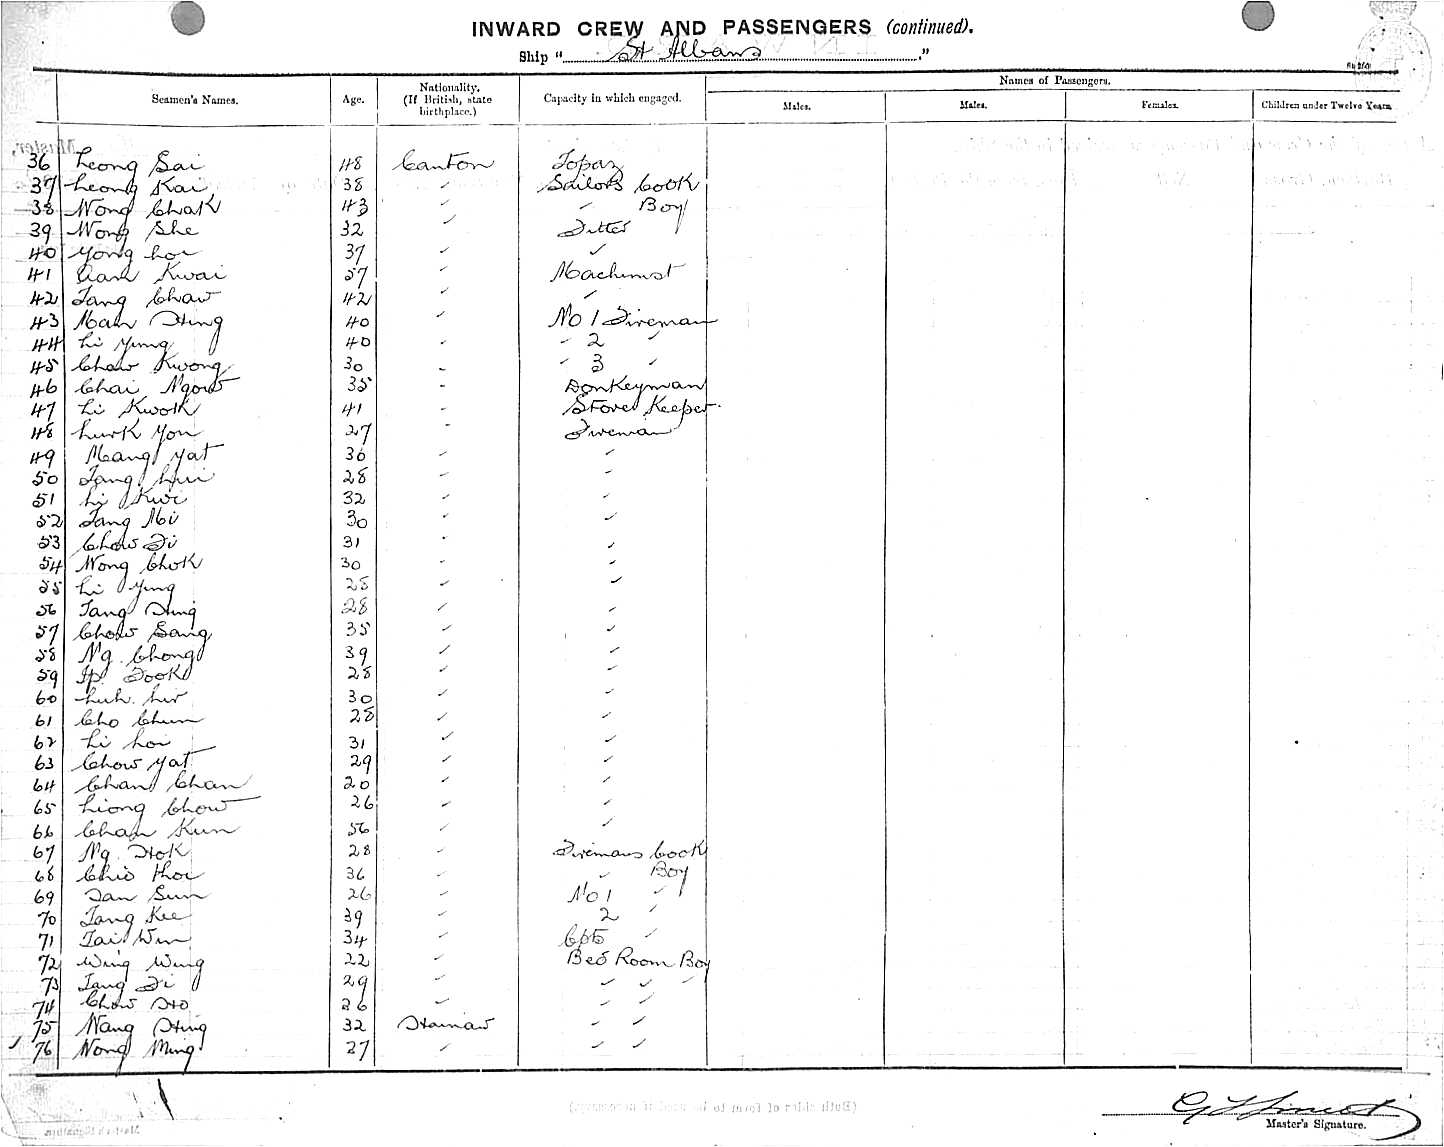 INWARD CREW AND PASSENGERS (continued).
Ship " St Albans "
Seamen's Names. Age. Nationality. (If British, state birthplace.) Capacity in which engaged. Names of Passengers.
Males. Males. Females. Children under Twelve Years.
36 Leong Sai 48 Canton Topaz
37 Leong Kai 38 " Sailors Cook
38 Wong Chak 43 " " Boy
39 Wong She 32 " Fitter
40 Yong Loi 37 " "
41 Kwai 57 " Machinist
42 Tang Chaw 42 " "
43 Man Hing 40 " No 1 Fireman
44 Li Yung 40 " 2 "
45 Chow Kwong 30 " " 3 "
46 Chai Ngow 35 " Donkeyman
47 Li Kwok 41 " Store Keeper
48 Luck Yon 27 " Fireman
49 Mang Yat 36 " "
50 Tang Lui 28 " "
51 Li Kwi 32 " "
52 Tang Mi 30 " "
53 Chow Fi 31 " "
54 Wong Chok 30 " "
55 Li Ying 28 " "
56 Tang Hing 28 " "
57 Chow Sang 35 " "
58 Ng Chong 39 " "
59 Ip Fook 28 " "
60 Luk 30 " "
61 Cho Chun 28 " "
62 Li Loi 31 " "
63 Chow Yat 29 " "
64 Chan Chan 20 " "
65 Liong Chow 26 " "
66 Chan Kun 56 " "
67 Ng Hok 28 " Firemans Cook
68 Choi 36 " " Boy
69 Tan Sun 26 " No 1 "
70 Tang Kee 39 " 2 "
71 Tai Win 34 " Cpts "
72 Wing Wing 22 " Bed Room Boy
73 Tang Fi 29 " " " "
74 Chow Ho 26 " " "
75 Wang Hing 32 Hainan " "
76 Wong Ming 27 " " "
Master's Signature.